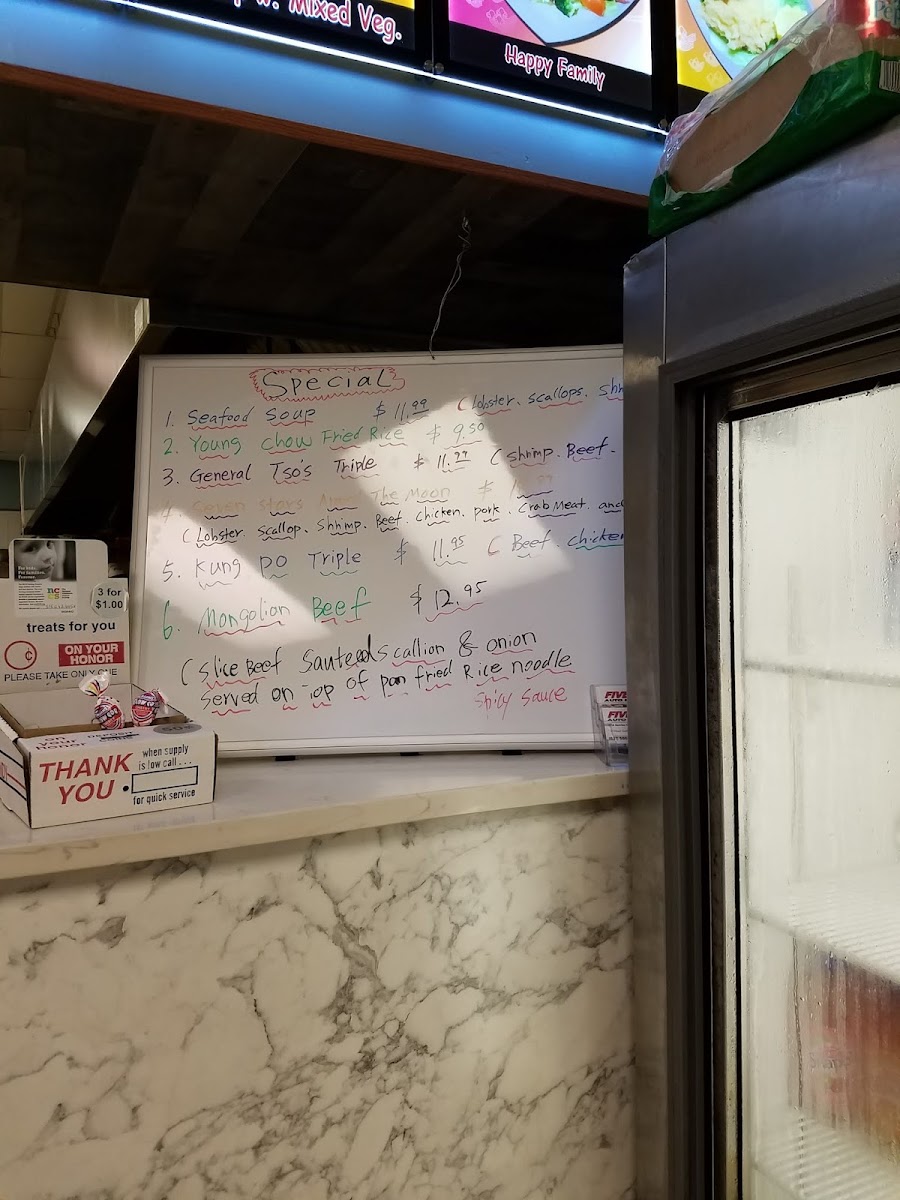 Mixed Veg.
Happy Family
Special
1. Seafood Soup $11.99 (Lobster. scallops. Shr
2. Young Chow Fried Rice $9.50
3. General Tso's Triple $11.99 (Shrimp. Beef.
Seven Stars The Moon $
(Lobster. scallop. Shhimp. Beef. chicken. pork. Crab Meat. and
5. Kung Po Triple $11.95 (Beef. chicken
6. Mongolian Beef $12.95
(slice Beef Sauteed scallion & onion
Served on Top of pan fried Rice noodle
Spicy Sauce
3 for
$1.00
treats for you
¢ ON YOUR
HONOR
PLEASE TAKE ONLY ONE
on
your honor
THANK
YOU
when supply
is low call...
for quick service
FIVE
FIVE